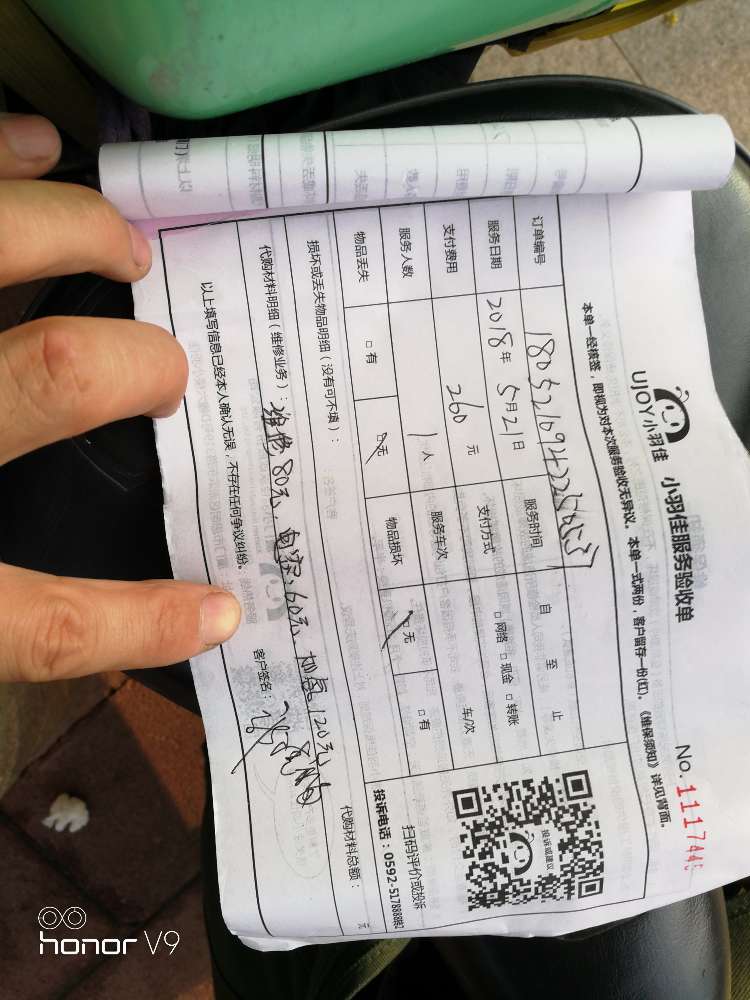 UJOY小羽佳 小羽佳服务验收单 No.111744
本单一经核签，即视为对本次服务验收无异议。本单一式两份，客户留存一份(红)。《维保须知》详见背面。
订单编号
服务时间 自 至 止
服务日期 2018年 5月21日 支付方式 □网络 □现金 □转账
支付费用 260 元 服务车次 车/次
服务人数 1人 物品损坏 □无 □有
物品丢失 □有 □无
损坏或丢失物品明细（没有可不填）：
代购材料明细（维修业务）：维修80元 电容:60元 加氟120元
代购材料总额：
以上填写信息已经本人确认无误，不存在任何争议纠纷。 客户签名：
投诉或建议
扫码评价或投诉
投诉电话：0592-5178888
honor V9